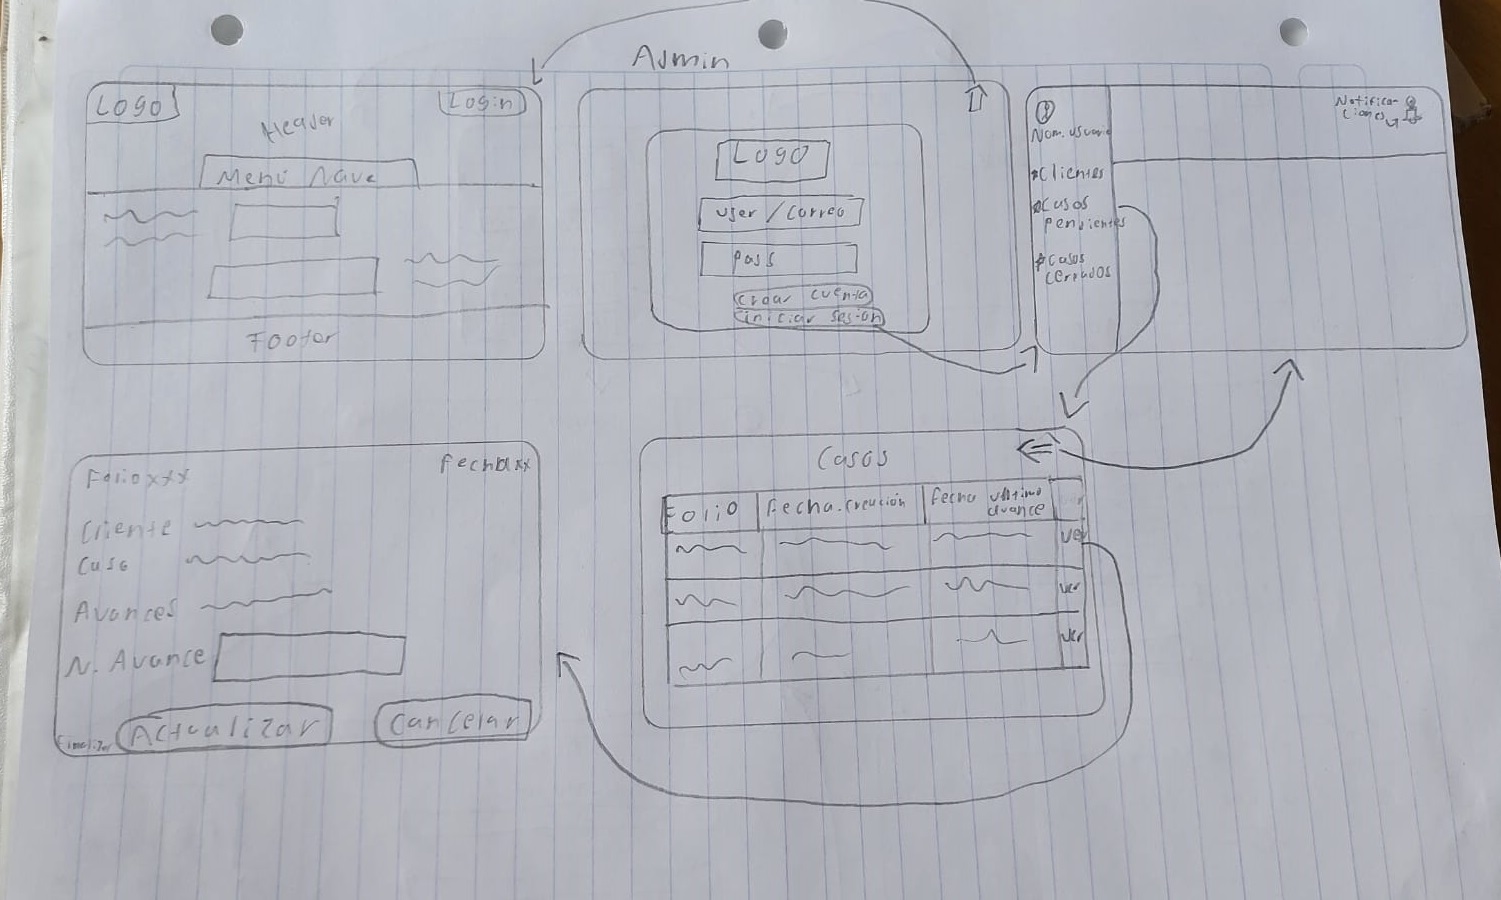 Admin
Logo
Login
Header
Menu Nave
Footer
Logo
user / correo
pass
crear cuenta
iniciar sesión
Nom. usuario
Notifica-
ciones
*Clientes
*Casos
pendientes
*Casos
cerrados
Folio xxx
Fecha xx
Cliente
Caso
Avances
N. Avance
Actualizar
Cancelar
Casos
Folio
Fecha.creación
Fecha ultimo
avance
ver
ver
ver